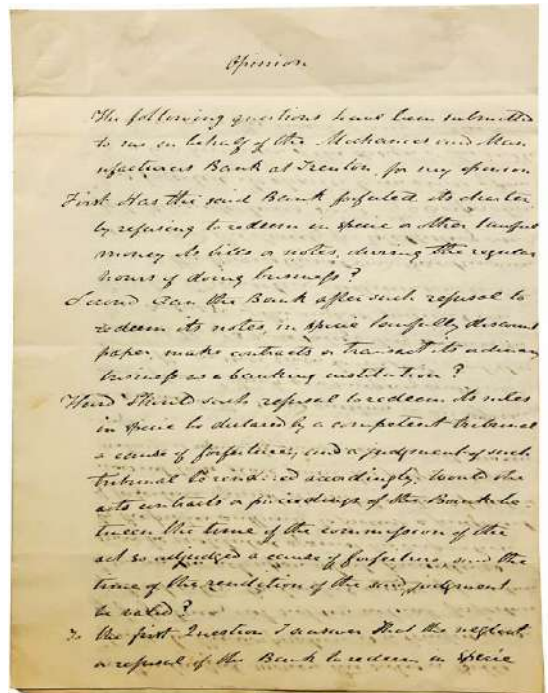 Opinion
The following questions have been submitted
to me on behalf of the Mechanics and Man
ufacturers Bank at Trenton, for my opinion
First Has the said Bank forfeited its charter
by refusing to redeem in specie or other lawful
money its bills or notes, during the regular
hours of doing business?
Second Can the Bank after such refusal to
redeem its notes, in specie lawfully discount
paper, make contracts or transact its ordinary
business as a banking institution?
Third Should such refusal to redeem its notes
in specie be declared by a competent tribunal
a cause of forfeiture, and a judgment of such
tribunal be rendered accordingly, would the
acts contracts or proceedings of the Bank be
tween the time of the commission of the
act so adjudged a cause of forfeiture, and the
time of the rendition of the said judgment
be valid?
To the first Question I answer That the neglect
or refusal of the Bank to redeem in specie